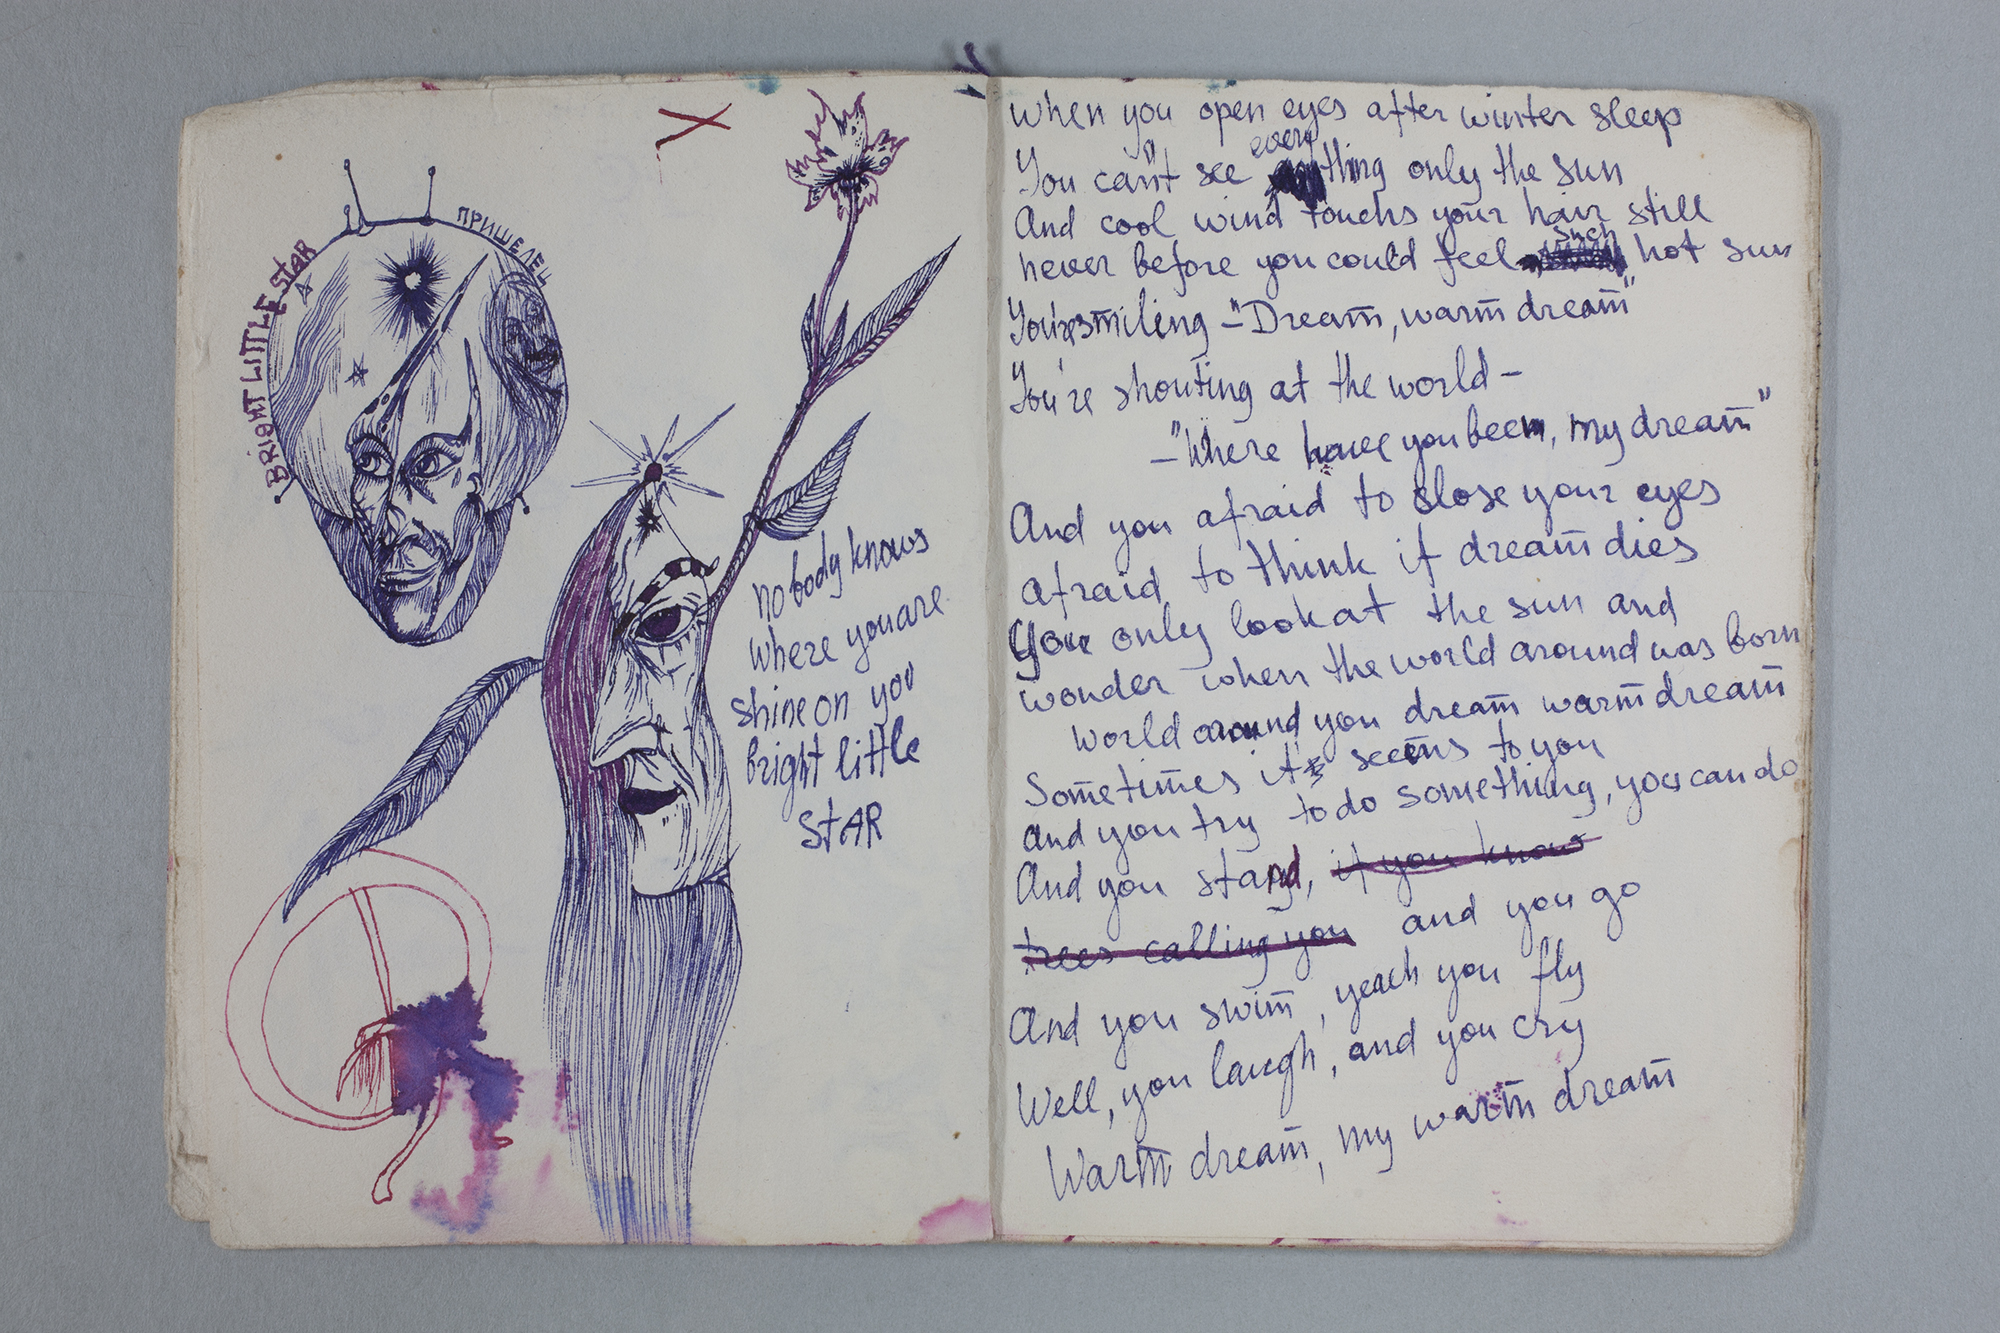 BRIGHT LITTLE STAR
ПРИШЕЛЕЦ
nobody knows
where you are
shine on you
bright little
STAR
when you open eyes after winter sleep
You can't see everything only the sun
And cool wind touchs your hair still
never before you could feel such hot sun
You're smiling - "Dream, warm dream"
You're shouting at the world -
- "Where have you been, my dream"
And you afraid to close your eyes
afraid to think if dream dies
You only look at the sun and
wonder when the world around was born
World around you dream warm dream
Sometimes it seems to you
And you try to do something, you can do
And you stand, if you know
trees calling you and you go
And you swim, yeach you fly
Well, you laugh, and you cry
Warm dream, my warm dream